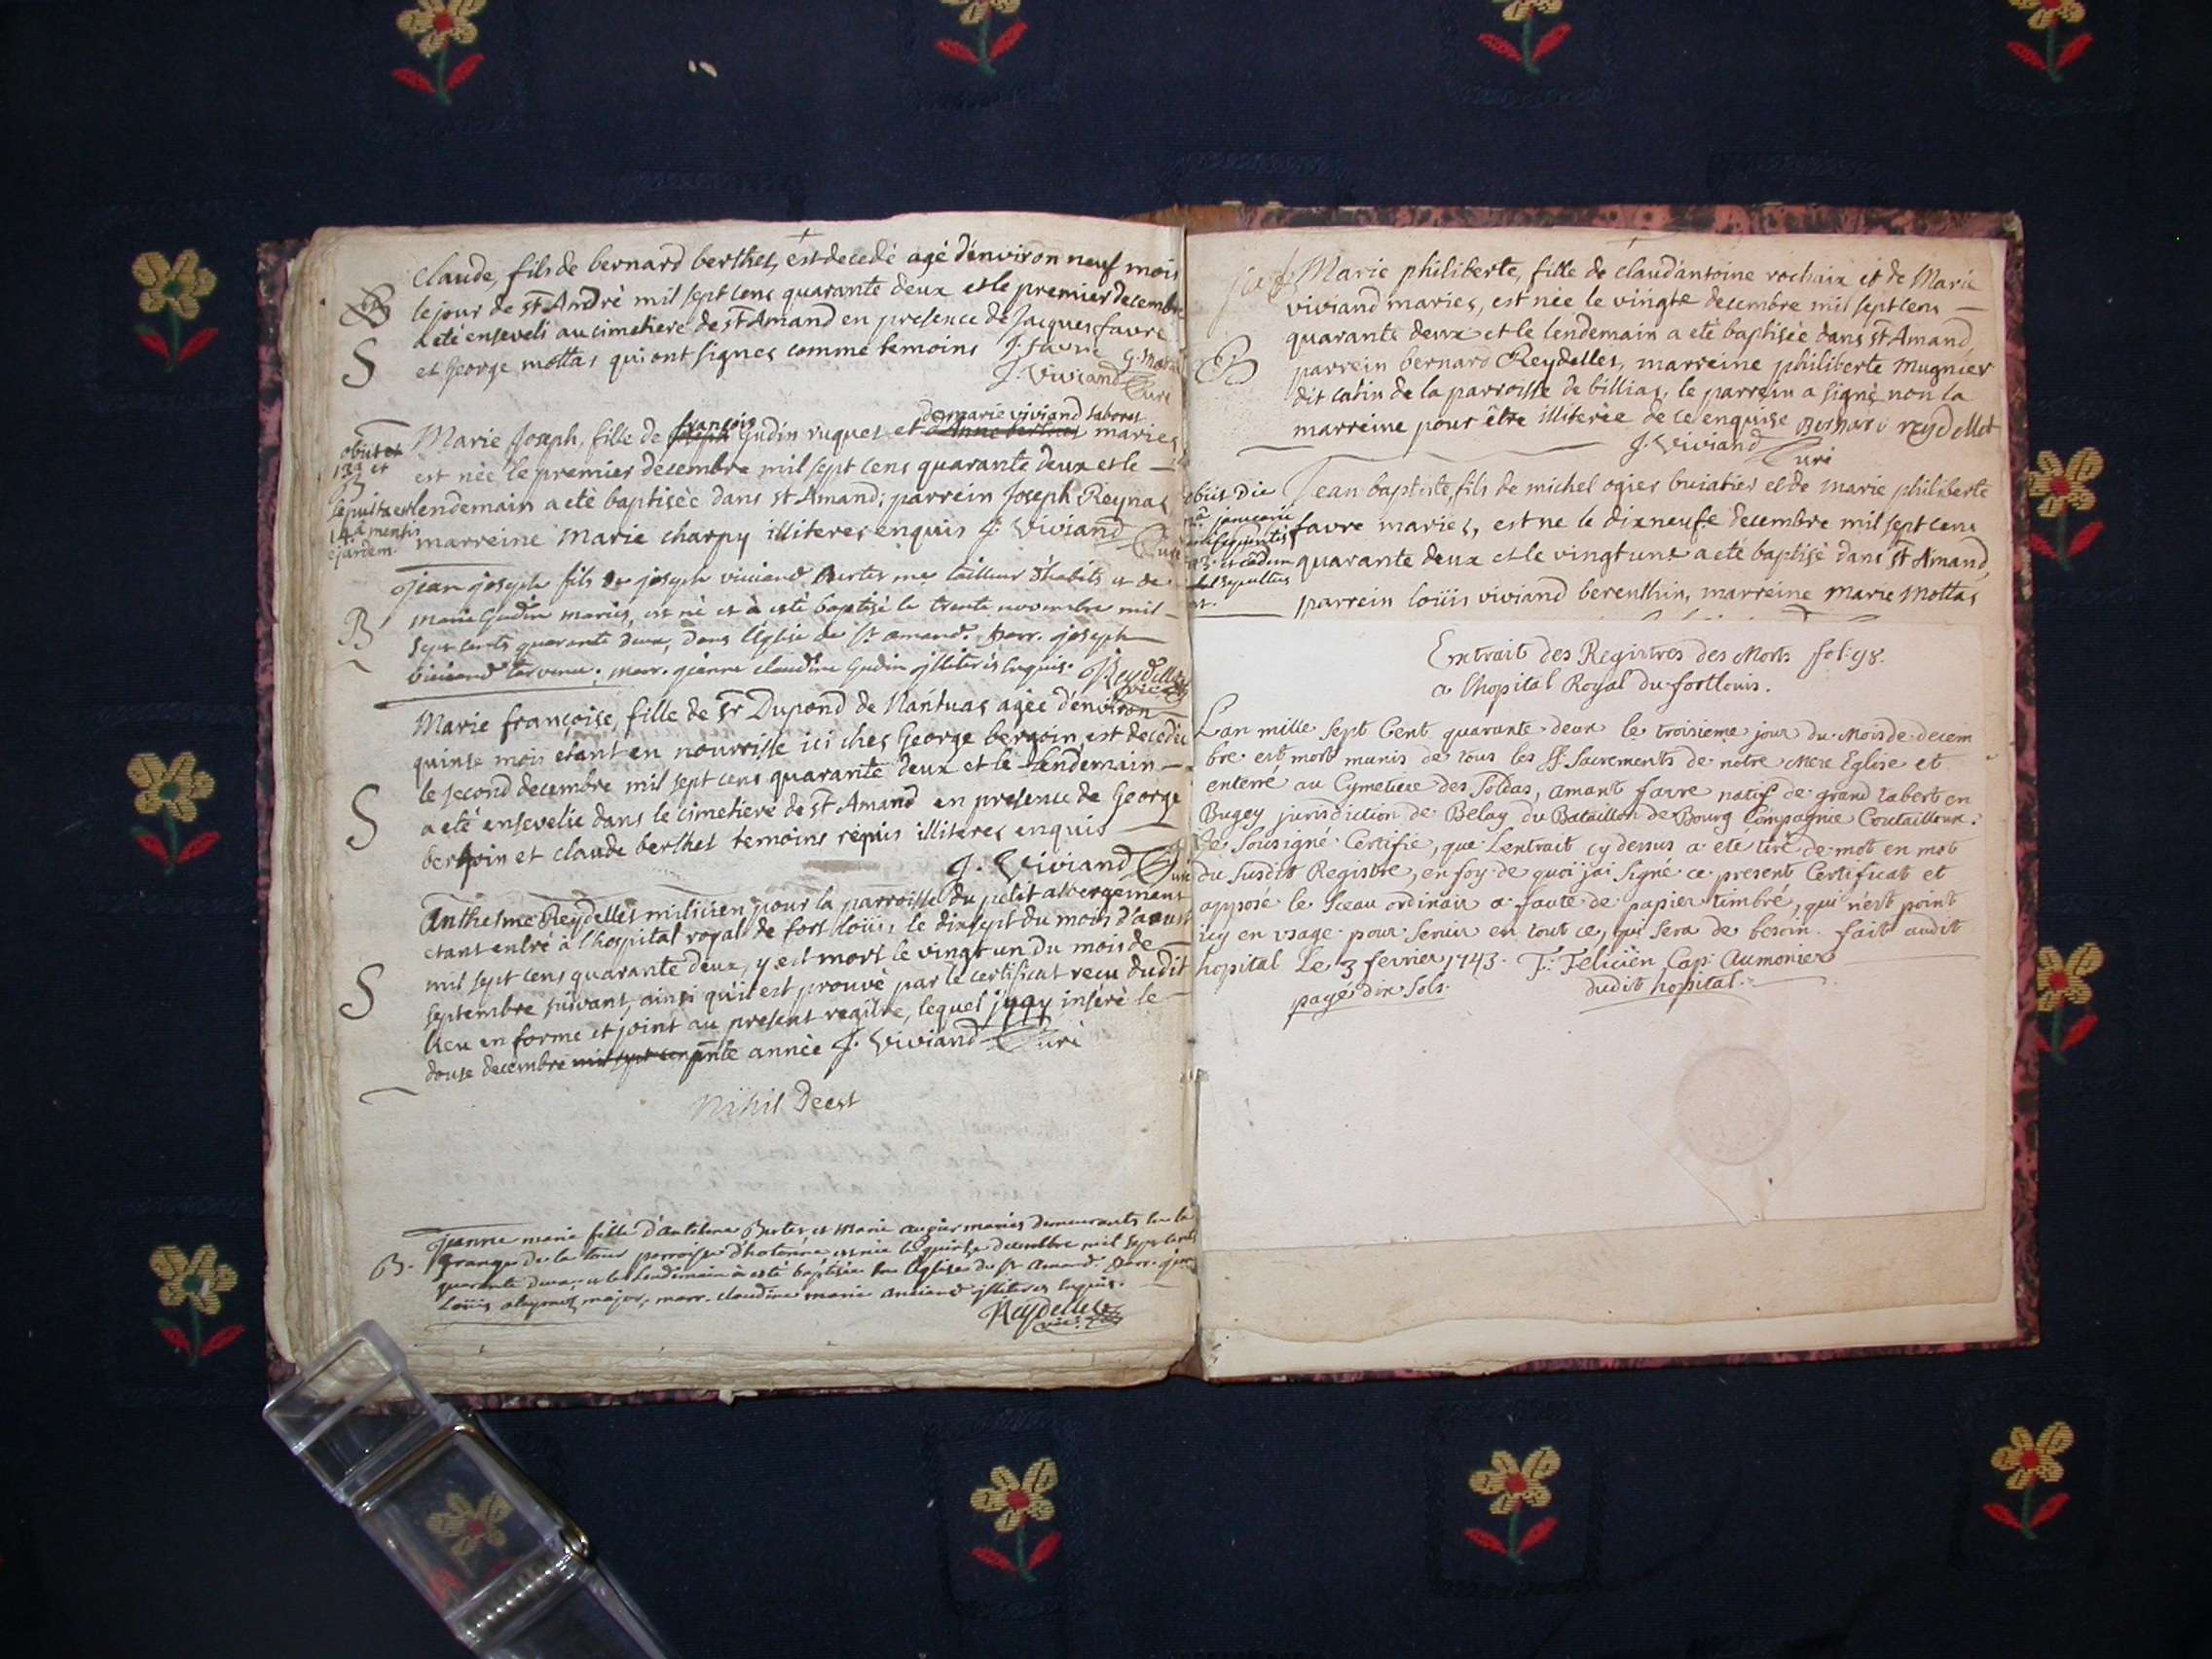 Claude, fils de bernard berthet, est decedé agé d'environ neuf mois
B le jour de st André mil sept cens quarante deux et le premier decembre
a eté enseveli au cimetiere de st Amand en presence de Jacques favre
S et George mottas qui ont signes comme temoins J. favre G. Mottas
J. Viviand Curé
françois de marie viviand
obiit et Marie Joseph, fille de Joseph Gudin ruques et d'Anne maries
13a et est née le premier decembre mil sept cens quarante deux et le
sepulta est lendemain a eté baptisèe dans st Amand; parrein Joseph Reynas
14a mensis marreine Marie charpy illiteres enquis J. Viviand Curé
ejusdem
Jean joseph fils de joseph viviand Burtes me tailleur d'habits et de
Marie Gudin mariés, est né et à esté baptisé le trente novembre mil
B sept cents quarante deux, dans l'Eglise de st amand. parr. joseph
viviand ; marr. jeanne claudine Gudin illiterés enquis. Reydellet
vic.
Marie françoise, fille de sr Dupond de Nantuas agée d'environ
quinse mois etant en nourrisse ici ches George bergoin, est decedée
le second decembre mil sept cens quarante deux et le lendemain
S a eté ensevelie dans le cimetiere de st Amand en presence de George
bergoin et claude berthet temoins requis illiteres enquis
J. Viviand Curé
Anthesme Reydelles milicien pour la parroisse du petit abergement
etant entré à l'hospital royal de fort loüis le dixsept du mois d'aoust
mil sept cens quarante deux, y est mort le vingt un du mois de
S septembre suivant, ainsi qu'il est prouvé par le certificat recu dudit
lieu en forme et joint au present regître, lequel j'y ay inséré le
douse decembre mil sept cen pnte année J. Viviand Curé
Nihil Deest
Jeanne marie fille d'Antelme Burtes, et Marie augier mariés demeurants en la
B. grange de la tour parroisse d'hotonne est née le quinze decembre mil sept cents
quarante deux, et le lendemain à esté baptisée en l'eglise de st Amand. parr. jean
Loüis major, marr. claudine marie illiteres enquis.
Reydellet
vic.
Marie philiberte, fille de claud'antoine rochaix et de Marie
viviand maries, est née le vingte decembre mil sept cens
quarante deux et le lendemain a eté baptisèe dans st Amand
B parrein bernard Reydelles, marreine philiberte Mugnier
dit catin de la parroisse de billias, le parrein a signè non la
marreine pour être illiterée de ce enquise Bernard reydellet
J. Viviand Curé
obiit die Jean baptiste, fils de michel ogier buiatier et de Marie philiberte
januarii favre maries, est ne le dixneufe decembre mil sept cens
sequentis quarante deux et le vingt une a eté baptisé dans st Amand,
et eadem
sepultus parrein loüis viviand berenthin, marreine Marie Mottas
est.
Extrait des Registres des Morts fol. 98.
a l'hopital Royal du fortlouis.
L'an mille sept Cent quarante deux le troisieme jour du Mois de decem
bre est mort munis de tous les SS. Sacrements de notre Mere Eglise et
enterré au Cymetiere des Soldas, amant favre natif de grand l'abert en
Bugey jurisdiction de Belay du Bataillon de Bourg Compagnie Coutailloux.
Je sousigné Certifie, que L'entrait cy dessus a été tiré de mot en mot
du susdit Registre, en foy de quoi j'ai signé ce present Certificat et
apposé le Sceau ordinair a faute de papier timbré, qui n'est point
icy en usage pour servir en tout ce, qui sera de besoin. fait audit
hopital Le 3 fevrier 1743. F. Felicien Cap: Aumonier
pagé dix sols. dudit hopital.